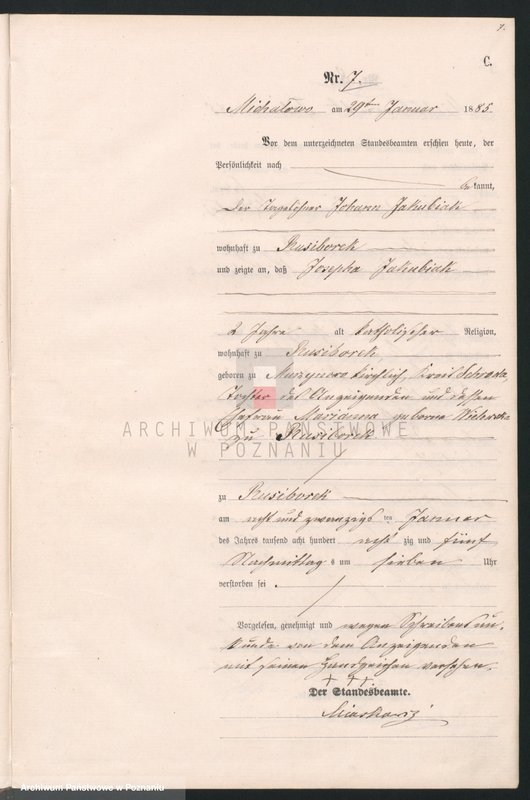 7.
C.
Nr. 7.
Michałowo am 29ten Januar 1885.
Vor dem unterzeichneten Standesbeamten erschien heute, der
Persönlichkeit nach
bekannt,
der Tagelöhner Johann Jakubiak
wohnhaft zu Rusiborek
und zeigte an, daß Josepha Jakubiak
2 Jahre alt katholischer Religion,
wohnhaft zu Rusiborek,
geboren zu Murzynowo kirchlich, Kreis Schroda,
Tochter des Anzeigenden und dessen
Ehefrau Marianna geborne
zu Rusiborek
ARCHIWUM PAŃSTWOWE
W POZNANIU
zu Rusiborek
am acht und zwanzigsten Januar
des Jahres tausend acht hundert achtzig und fünf
Nachmittags um sieben Uhr
verstorben sei.
Vorgelesen, genehmigt und wegen Schreibensun-
kunde von dem Anzeigenden
mit seinen Handzeichen versehen.
+ + +.
Der Standesbeamte.
Archiwum Państwowe w Poznaniu